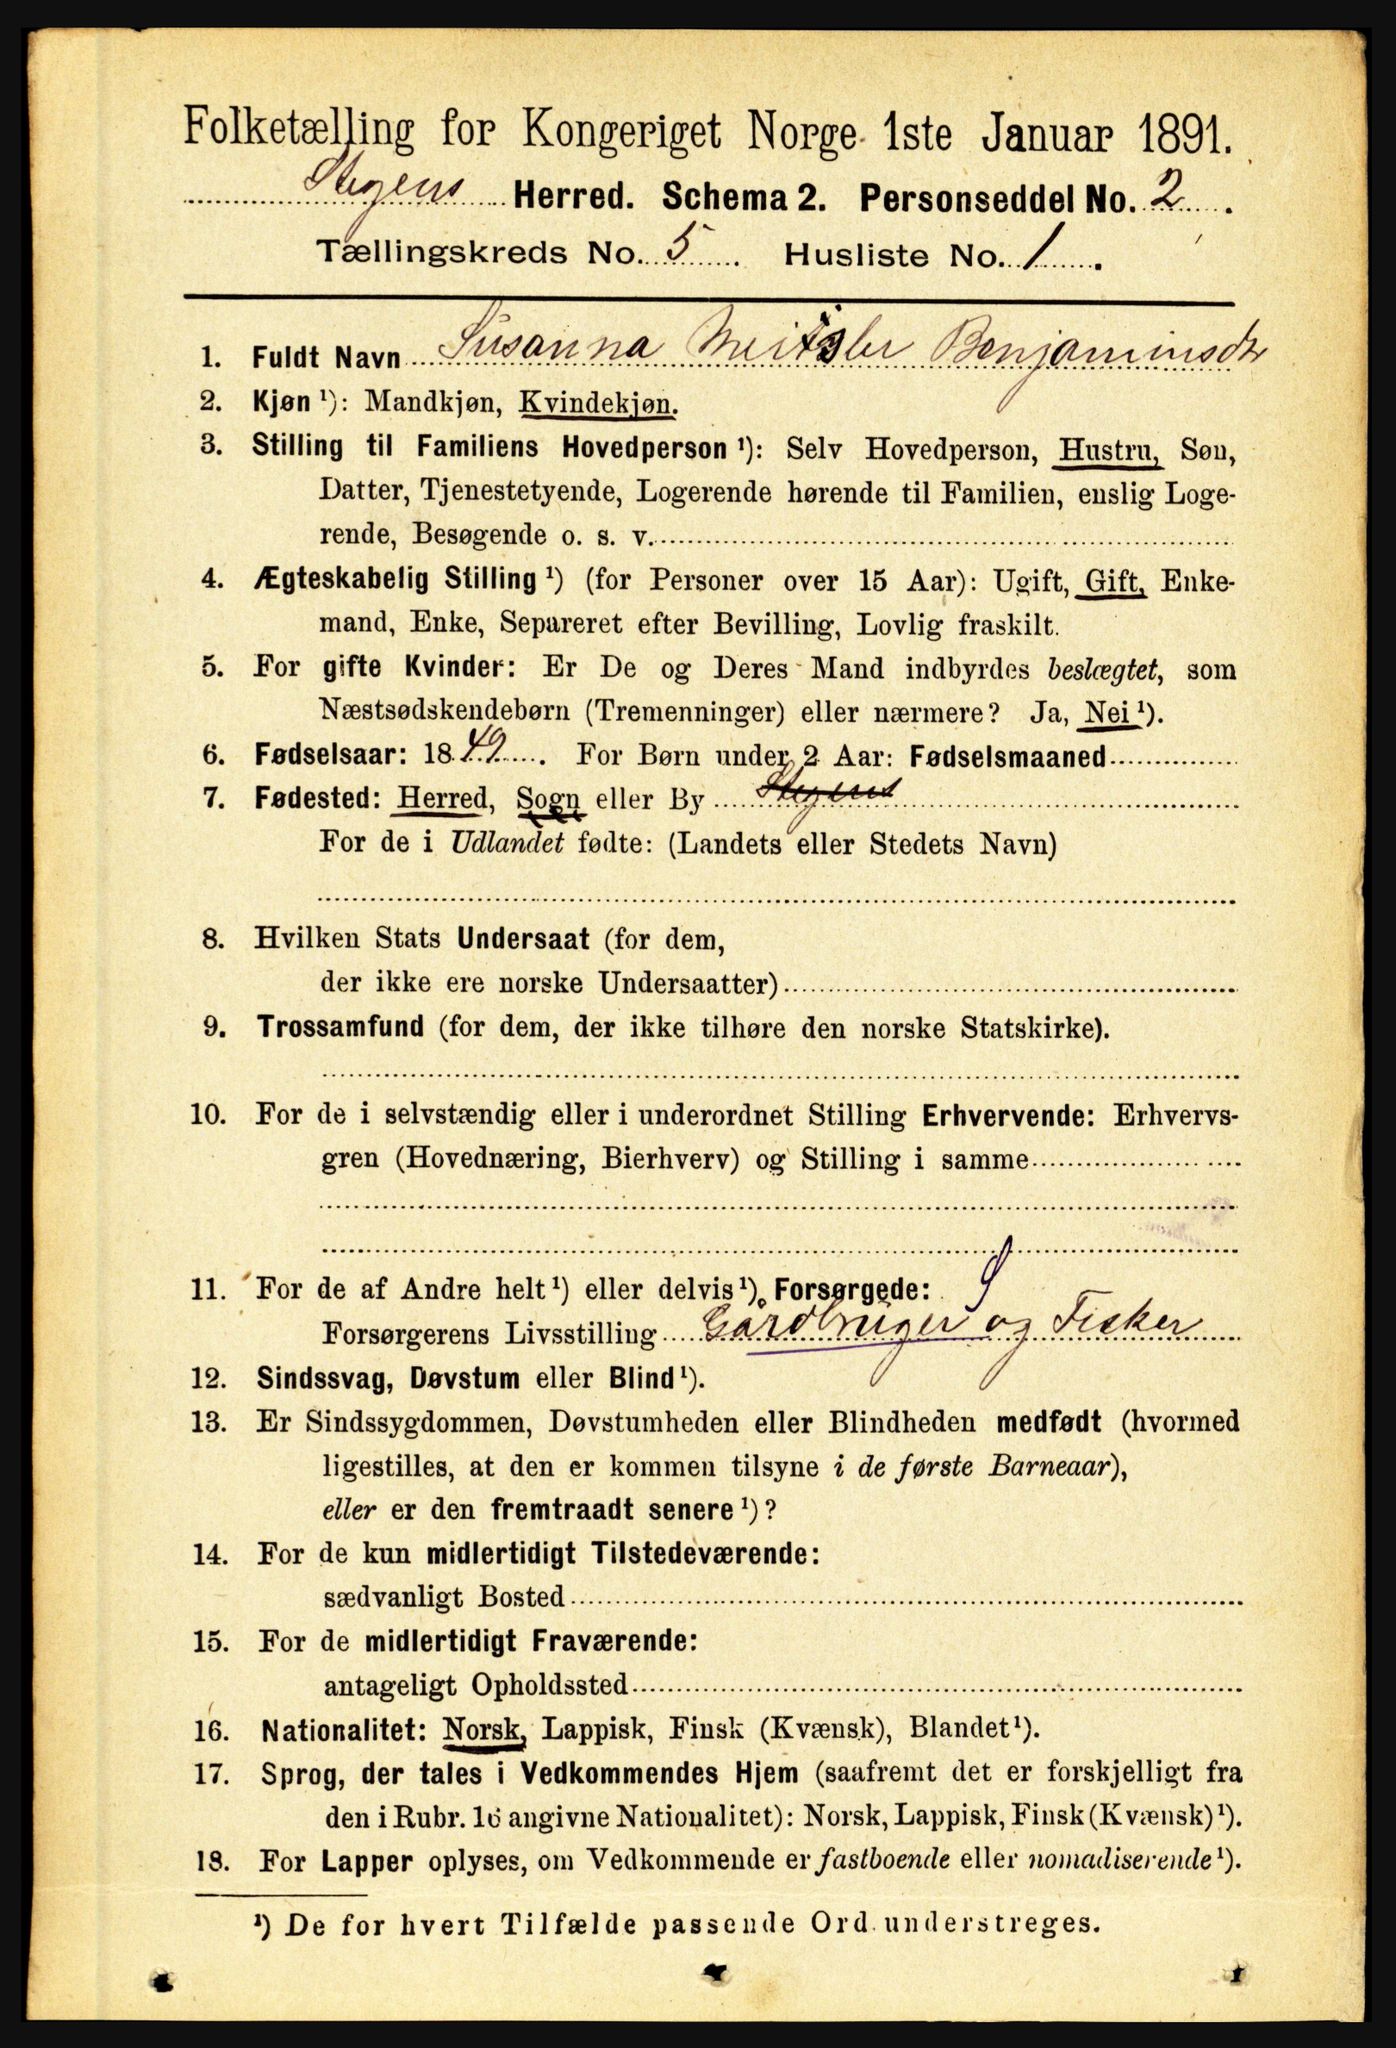 Folketælling for Kongeriget Norge 1ste Januar 1891.
Stegens Herred. Schema 2. Personseddel No. 2.
Tællingskreds No. 5. Husliste No. 1.
1. Fuldt Navn Susanna Benjaminsdtr
2. Kjøn ¹): Mandkjøn, Kvindekjøn.
3. Stilling til Familiens Hovedperson ¹): Selv Hovedperson, Hustru, Søn,
Datter, Tjenestetyende, Logerende hørende til Familien, enslig Loge-
rende, Besøgende o. s. v.
4. Ægteskabelig Stilling ¹) (for Personer over 15 Aar): Ugift, Gift, Enke-
mand, Enke, Separeret efter Bevilling, Lovlig fraskilt.
5. For gifte Kvinder: Er De og Deres Mand indbyrdes beslægtet, som
Næstsødskendebørn (Tremenninger) eller nærmere? Ja, Nei ¹).
6. Fødselsaar: 1849. For Børn under 2 Aar: Fødselsmaaned
7. Fødested: Herred, Sogn eller By Stegens
For de i Udlandet fødte: (Landets eller Stedets Navn)
8. Hvilken Stats Undersaat (for dem,
der ikke ere norske Undersaatter)
9. Trossamfund (for dem, der ikke tilhøre den norske Statskirke).
10. For de i selvstændig eller i underordnet Stilling Erhvervende: Erhvervs-
gren (Hovednæring, Bierhverv) og Stilling i samme
11. For de af Andre helt ¹) eller delvis ¹) Forsørgede:
Forsørgerens Livsstilling Gårdbruger og Fisker
12. Sindssvag, Døvstum eller Blind ¹).
13. Er Sindssygdommen, Døvstumheden eller Blindheden medfødt (hvormed
ligestilles, at den er kommen tilsyne i de første Barneaar),
eller er den fremtraadt senere ¹)?
14. For de kun midlertidigt Tilstedeværende:
sædvanligt Bosted
15. For de midlertidigt Fraværende:
antageligt Opholdssted
16. Nationalitet: Norsk, Lappisk, Finsk (Kvænsk), Blandet ¹).
17. Sprog, der tales i Vedkommendes Hjem (saafremt det er forskjelligt fra
den i Rubr. 16 angivne Nationalitet): Norsk, Lappisk, Finsk (Kvænsk) ¹).
18. For Lapper oplyses, om Vedkommende er fastboende eller nomadiserende ¹).
¹) De for hvert Tilfælde passende Ord understreges.